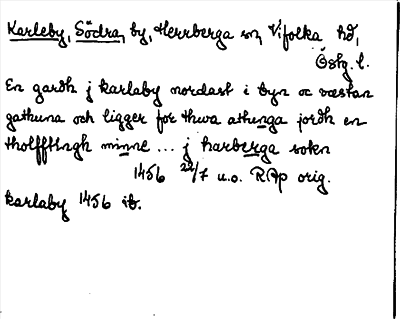 Karleby, Södra, by, Herrberga sn, Vifolka hd,
Östg. l.
En gardh j karlaby nordast i byn oc væstan
gathuna och ligger for thwa athunga jordh en
tholfftungh minne ... j harberga sokn
1456 22/7 u.o. RAp orig.
karlaby 1456 ib.